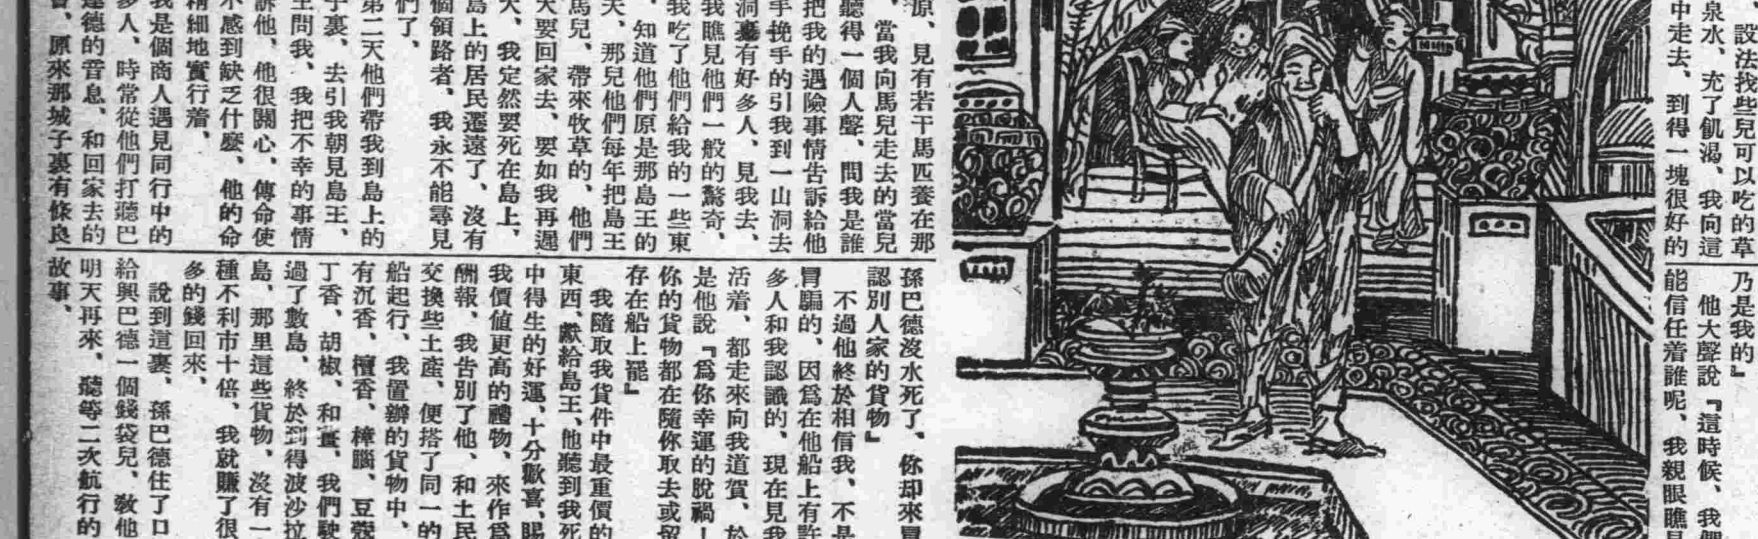 、設法找些兒可以吃的草
泉水、充了飢渴、我向這
中走去、到得一塊很好的
原、見有若干馬匹養在那
、當我向馬兒走去的當兒
聽得一個人聲、問我是誰
把我的遇險事情告訴給他
手挽手的引我到一山洞去
洞裏有好多人、見我去、
我瞧見他們一般的驚奇、
我吃了他們給我的一些東
、知道他們原是那島王的
天、那兒他們每年把島王
馬兒、帶來牧草的、他們
天要回家去、要如我再遲
天、我定然要死在島上、
島上的居民還遠了、沒有
個領路者、我永不能尋見
們了、
第二天他們帶我到島上的
子裏、去引我朝見島王、
王問我、我把不幸的事情
訴他、他很關心、傳命使
不感到缺乏什麼、他的命
精細地實行着、
我是個商人遇見同行中的
多人、時常從他們打聽巴
達德的音息、和回家去的
、原來那城子裏有條良
乃是我的』
他大聲說『這時候、我們
能信任着誰呢、我親眼瞧見
孫巴德沒水死了、你却來冒
認別人家的貨物』
不過他終於相信我、不是
冒騙的、因爲在他船上有許
多人和我認識的、現在見我
活着、都走來向我道賀、於
是他說『爲你幸運的脫禍
你的貨物都在隨你取去或留
存在船上罷』
我隨取我貨件中最重價的
東西、獻給島王、他聽到我死
中得生的好運、十分歡喜、賜
我價値更高的禮物、來作爲
酬報、我告別了他、和土民
交換些土產、便搭了同一的
船起行、我置辦的貨物中、
有沉香、檀香、樟腦、豆蔻
丁香、胡椒、和薑、我們駛
過了數島、終於到得波沙拉
島、那里這些貨物、沒有一
種不利市十倍、我就賺了很
多的錢回來、
說到這裏、孫巴德住了口
給興巴德一個錢袋兒、敎他
明天再來、聽第二次航行的
故事、